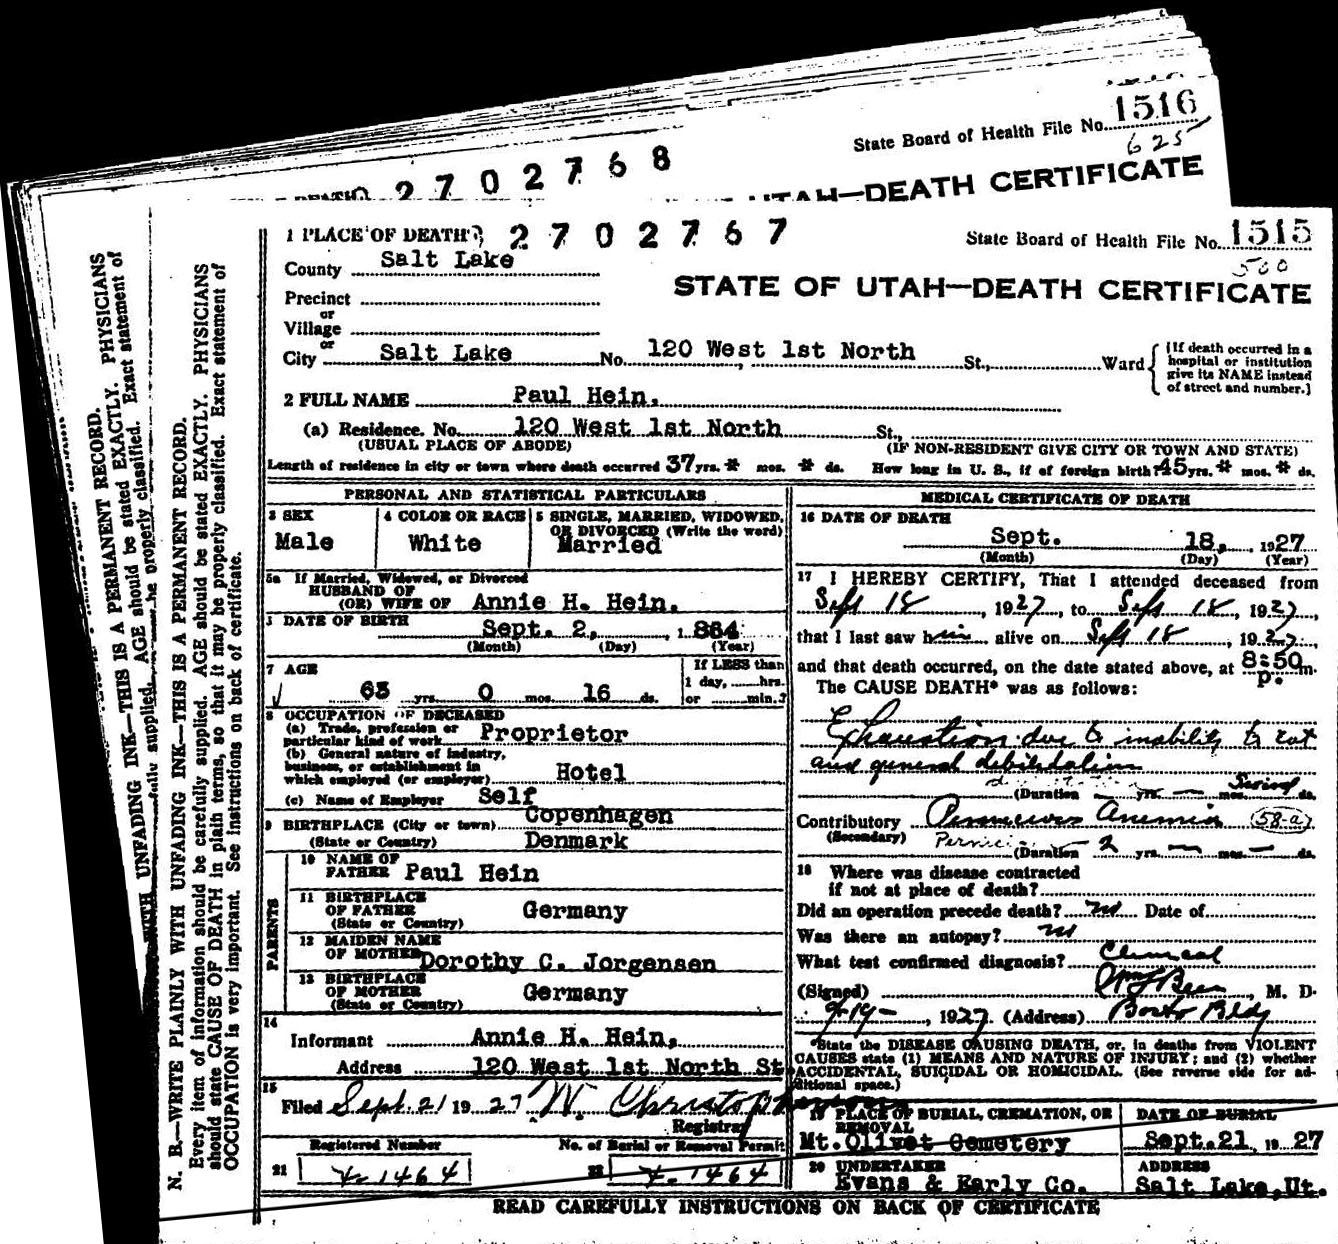 State Board of Health File No. 1516
625
2702768
UTAH—DEATH CERTIFICATE
1 PLACE OF DEATH 2702767 State Board of Health File No. 1515
500
County Salt Lake
STATE OF UTAH—DEATH CERTIFICATE
Precinct
or
Village
or
City Salt Lake No. 120 West 1st North St., Ward
[If death occurred in a hospital or institution give its NAME instead of street and number.]
2 FULL NAME Paul Hein.
(a) Residence. No. 120 West 1st North St.,
(USUAL PLACE OF ABODE) (IF NON-RESIDENT GIVE CITY OR TOWN AND STATE)
Length of residence in city or town where death occurred 37 yrs. * mos. * ds. How long in U. S., if of foreign birth? 45 yrs. * mos. * ds.
PERSONAL AND STATISTICAL PARTICULARS
3 SEX
Male
4 COLOR OR RACE
White
5 SINGLE, MARRIED, WIDOWED,
OR DIVORCED (Write the word)
Married
5a If Married, Widowed, or Divorced
HUSBAND OF
(OR) WIFE OF Annie H. Hein.
DATE OF BIRTH
Sept. 2, 1864
(Month) (Day) (Year)
7 AGE
63 yrs. 0 mos. 16 ds.
If LESS than
1 day, hrs.
or min.?
8 OCCUPATION OF DECEASED
(a) Trade, profession or
particular kind of work Proprietor
(b) General nature of industry,
business, or establishment in
which employed (or employer) Hotel
(c) Name of Employer Self
9 BIRTHPLACE (City or town) Copenhagen
(State or Country) Denmark
PARENTS
10 NAME OF
FATHER Paul Hein
11 BIRTHPLACE
OF FATHER Germany
(State or Country)
12 MAIDEN NAME
OF MOTHER Dorothy C. Jorgensen
13 BIRTHPLACE
OF MOTHER Germany
(State or Country)
14
Informant Annie H. Hein,
Address 120 West 1st North St
15
Filed Sept. 21 1927 W. Christopherson
Registrar
Registered Number No. of Burial or Removal Permit
21 1464 22 1464
MEDICAL CERTIFICATE OF DEATH
16 DATE OF DEATH
Sept. 18, 1927
(Month) (Day) (Year)
17 I HEREBY CERTIFY, That I attended deceased from
Sept 18, 1927, to Sept 18, 1927,
that I last saw him alive on Sept 18, 1927,
and that death occurred, on the date stated above, at 8:50 m.
p.
The CAUSE DEATH* was as follows:
Exhaustion due to inability to eat
and general
(Duration yrs. — mos. ds.
Contributory Pernicious Anemia 58-a
(Secondary) (Duration 2 yrs. — mos. — ds.
18 Where was disease contracted
if not at place of death?
Did an operation precede death? no Date of
Was there an autopsy? no
What test confirmed diagnosis? Clinical
(Signed) M. D.
9-19-, 1927 (Address) Bldg
*State the DISEASE CAUSING DEATH, or, in deaths from VIOLENT
CAUSES state (1) MEANS AND NATURE OF INJURY; and (2) whether
ACCIDENTAL, SUICIDAL OR HOMICIDAL. (See reverse side for ad-
ditional space.)
19 PLACE OF BURIAL, CREMATION, OR
REMOVAL
Mt. Olivet Cemetery
DATE OF BURIAL
Sept. 21, 1927
20 UNDERTAKER
Evans & Early Co.
ADDRESS
Salt Lake, Ut.
READ CAREFULLY INSTRUCTIONS ON BACK OF CERTIFICATE
N. B.—WRITE PLAINLY WITH UNFADING INK—THIS IS A PERMANENT RECORD.
Every item of information should be carefully supplied. AGE should be stated EXACTLY. PHYSICIANS
should state CAUSE OF DEATH in plain terms, so that it may be properly classified. Exact statement of
OCCUPATION is very important. See instructions on back of certificate.
WITH UNFADING INK—THIS IS A PERMANENT RECORD.
supplied. AGE should be stated EXACTLY. PHYSICIANS
be properly classified. Exact statement of